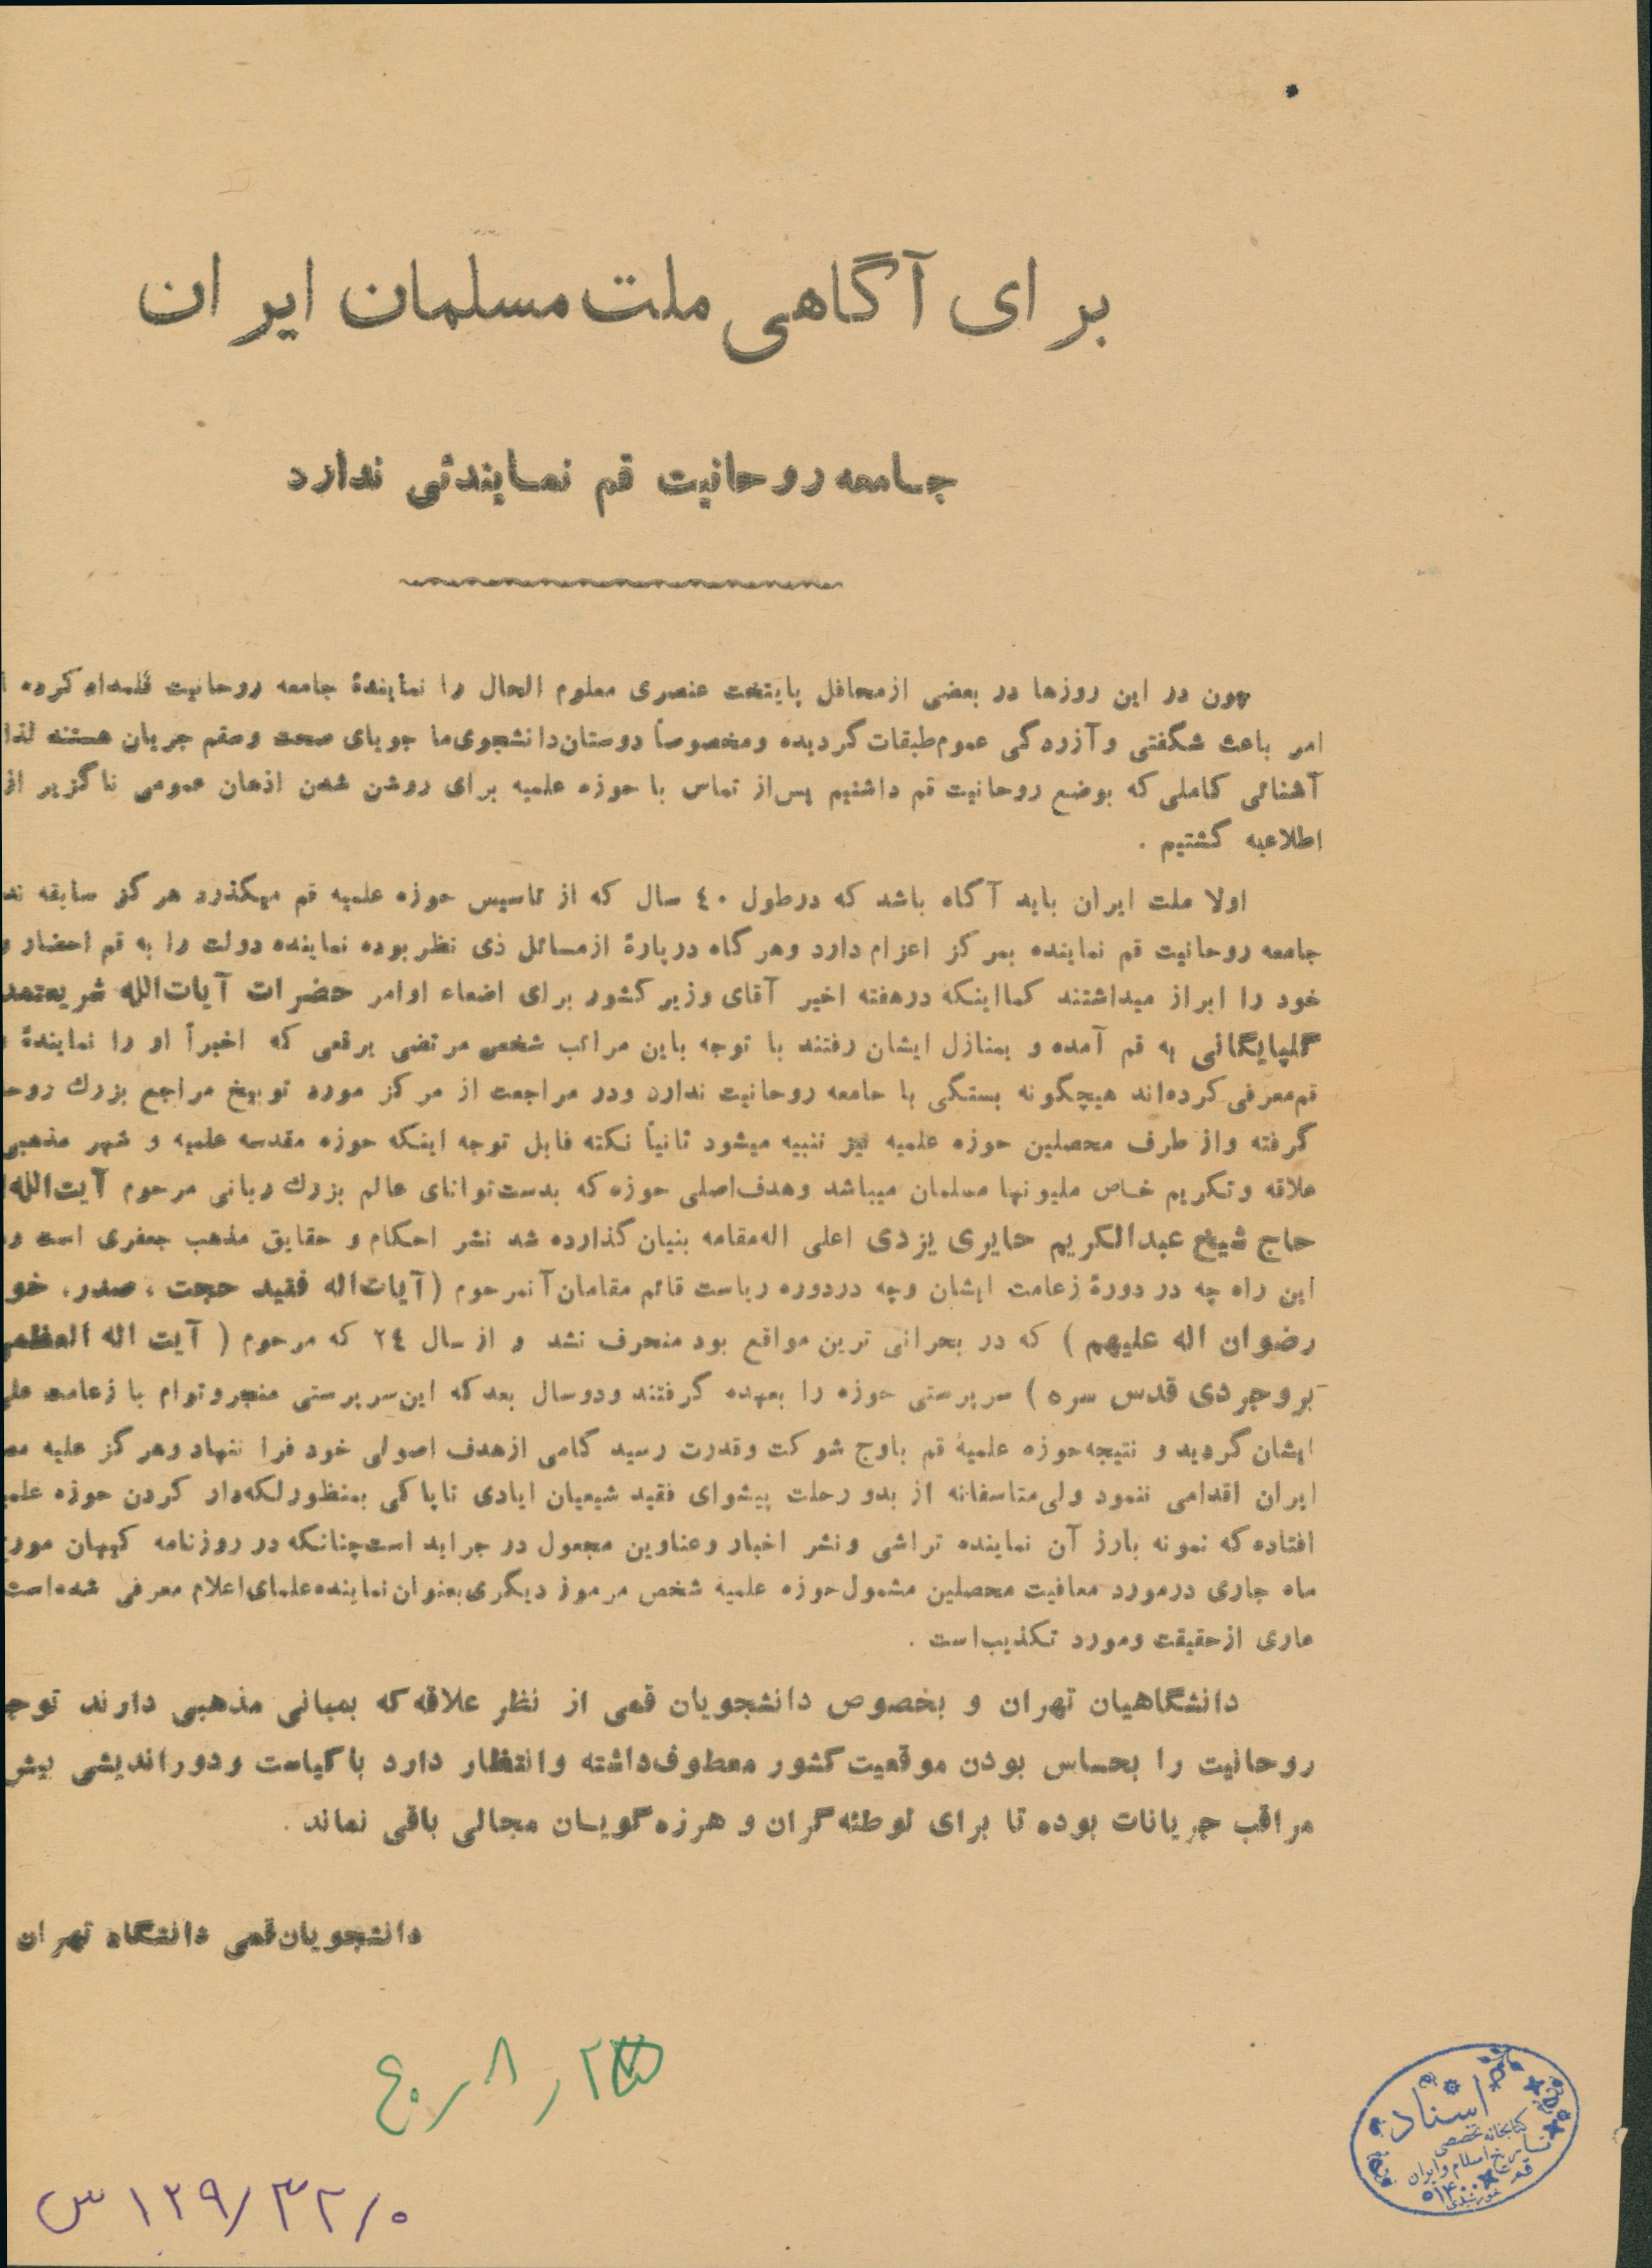 برای آگاهی ملت مسلمان ایران
جامعه روحانیت قم نمایندئی ندارد
چون در این روزها در بعضی ازمحافل پایتخت عنصری معلوم الحال را نمایندۀ جامعه روحانیت قلمداد کرده
امر باعث شگفتی و آزردگی عموم طبقات گردیده ومخصوصاً دوستان دانشجوی ما جویای صحت وسقم جریان هستند لذا
آشنائی کاملی که بوضع روحانیت قم داشتیم پس از تماس با حوزه علمیه برای روشن شدن اذهان عمومی ناگزیر از
اطلاعیه گشتیم .
اولا ملت ایران باید آگاه باشد که درطول ٤٠ سال که از تاسیس حوزه علمیه قم میگذرد هرگز سابقه
جامعه روحانیت قم نماینده بمرکز اعزام دارد وهرگاه دربارۀ ازمسائل ذی نظر بوده نماینده دولت را به قم احضار و
خود را ابراز میداشتند کمااینکه درهفته اخیر آقای وزیر کشور برای اضعاء اوامر حضرات آیات‌الله شریعتمد
گلپایگانی به قم آمده و بمنازل ایشان رفتند با توجه باین مراتب شخص مرتضی برقعی که اخیراً او را نمایندۀ
قم معرفی کرده‌اند هیچگونه بستگی با جامعه روحانیت ندارد ودر مراجعت از مرکز مورد توبیخ مراجع بزرك روحـ
گرفته واز طرف محصلین حوزه علمیه نیز تنبیه میشود ثانیاً نکته قابل توجه اینکه حوزه مقدسه علمیه و شهر مذهبی
علاقه وتکریم خاص ملیونها مسلمان میباشد وهدف اصلی حوزه که بدست توانای عالم بزرك ربانی مرحوم آیت‌الله
حاج شیخ عبدالکریم حایری یزدی اعلی اله مقامه بنیان گذارده شد نشر احکام و حقایق مذهب جعفری است و
این راه چه در دورۀ زعامت ایشان وچه دردوره ریاست قائم مقامان آنمرحوم (آیات‌اله فقید حجت ، صدر، خو
رضوان اله علیهم ) که در بحرانی ترین مواقع بود منحرف نشد و از سال ٢٤ که مرحوم ( آیت اله العظمی
بروجردی قدس سره ) سرپرستی حوزه را بعهده گرفتند ودوسال بعد که این سرپرستی منجر وتوام با زعامت
ایشان گردید و نتیجه حوزه علمیۀ قم باوج شوکت وقدرت رسید گامی ازهدف اصولی خود فرا ننهاد وهرگز علیه
ایران اقدامی ننمود ولی متاسفانه از بدو رحلت پیشوای فقید شیعیان ایادی ناپاکی بمنظور لکه‌دار کردن حوزه علمیـ
افتاده که نمونه بارز آن نماینده تراشی ونشر اخبار وعناوین مجعول در جراید است چنانکه در روزنامه کیهان مورخ
ماه جاری درمورد معافیت محصلین مشمول حوزه علمیه شخص مرموز دیگری بعنوان نماینده علمای اعلام معرفی شده است
عاری ازحقیقت ومورد تکذیب است .
دانشگاهیان تهران و بخصوص دانشجویان قمی از نظر علاقه که بمبانی مذهبی دارند توجـ
روحانیت را بحساس بودن موقعیت کشور معطوف داشته وانتظار دارد باکیاست ودوراندیشی بیش
مراقب جریانات بوده تا برای توطئه گران و هرزه گویان مجالی باقی نماند .
دانشجویان قمی دانشگاه تهران
۸ر۴۰
۱۲۹/۳۲/۰ س
اسناد
کتابخانه تخصصی
تاریخ اسلام و ایران
قم